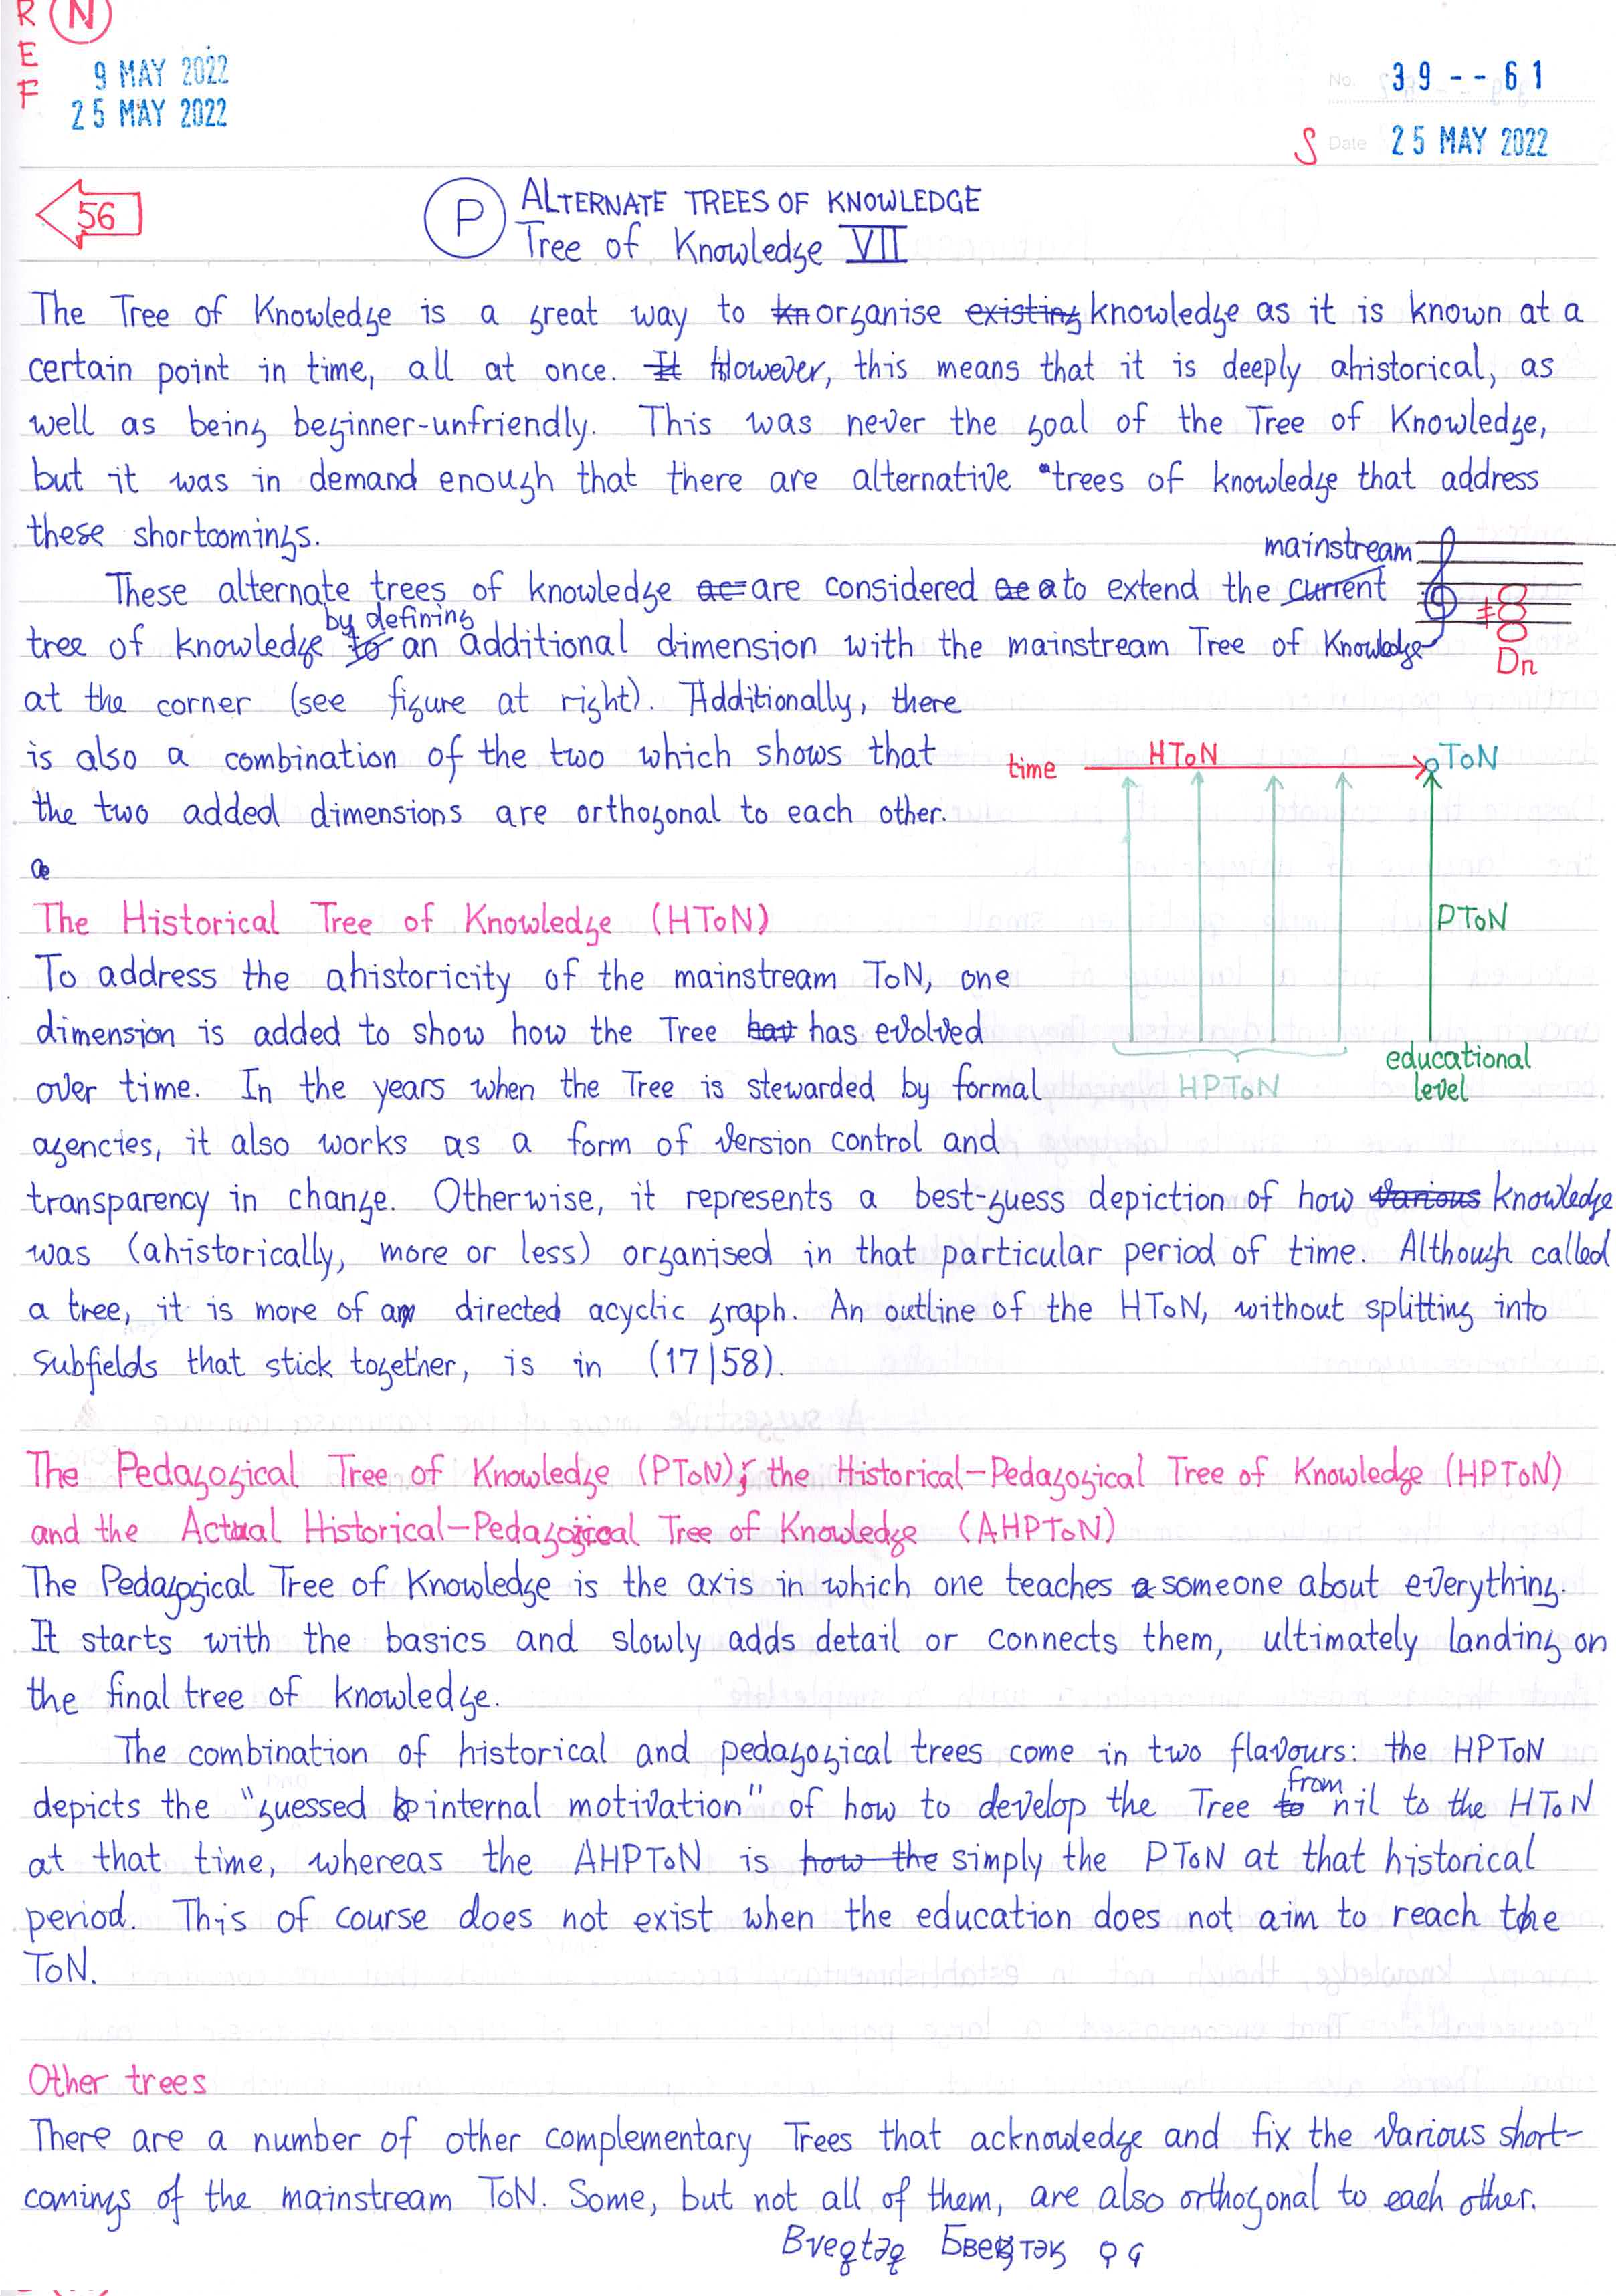 R N
E
F
9 MAY 2022
25 MAY 2022
No. 39 -- 61
S Date 25 MAY 2022
56
P ALTERNATE TREES OF KNOWLEDGE
Tree of Knowledge VII
The Tree of Knowledge is a great way to kn organise existing knowledge as it is known at a
certain point in time, all at once. It However, this means that it is deeply ahistorical, as
well as being beginner-unfriendly. This was never the goal of the Tree of Knowledge,
but it was in demand enough that there are alternative trees of knowledge that address
these shortcomings.
mainstream
These alternate trees of knowledge are considered to extend the current
by defining
tree of knowledge to an additional dimension with the mainstream Tree of Knowledge
Dn
at the corner (see figure at right). Additionally, there
is also a combination of the two which shows that
the two added dimensions are orthogonal to each other.
time HToN ToN
PToN
HPToN
educational
level
The Historical Tree of Knowledge (HToN)
To address the ahistoricity of the mainstream ToN, one
dimension is added to show how the Tree has evolved
over time. In the years when the Tree is stewarded by formal
agencies, it also works as a form of version control and
transparency in change. Otherwise, it represents a best-guess depiction of how various knowledge
was (ahistorically, more or less) organised in that particular period of time. Although called
a tree, it is more of a directed acyclic graph. An outline of the HToN, without splitting into
subfields that stick together, is in (17|58).
The Pedagogical Tree of Knowledge (PToN), the Historical-Pedagogical Tree of Knowledge (HPToN)
and the Actual Historical-Pedagogical Tree of Knowledge (AHPToN)
The Pedagogical Tree of Knowledge is the axis in which one teaches someone about everything.
It starts with the basics and slowly adds detail or connects them, ultimately landing on
the final tree of knowledge.
The combination of historical and pedagogical trees come in two flavours: the HPToN
from
depicts the "guessed internal motivation" of how to develop the Tree to nil to the HToN
at that time, whereas the AHPToN is how the simply the PToN at that historical
period. This of course does not exist when the education does not aim to reach the
ToN.
Other trees
There are a number of other complementary Trees that acknowledge and fix the various short-
comings of the mainstream ToN. Some, but not all of them, are also orthogonal to each other.